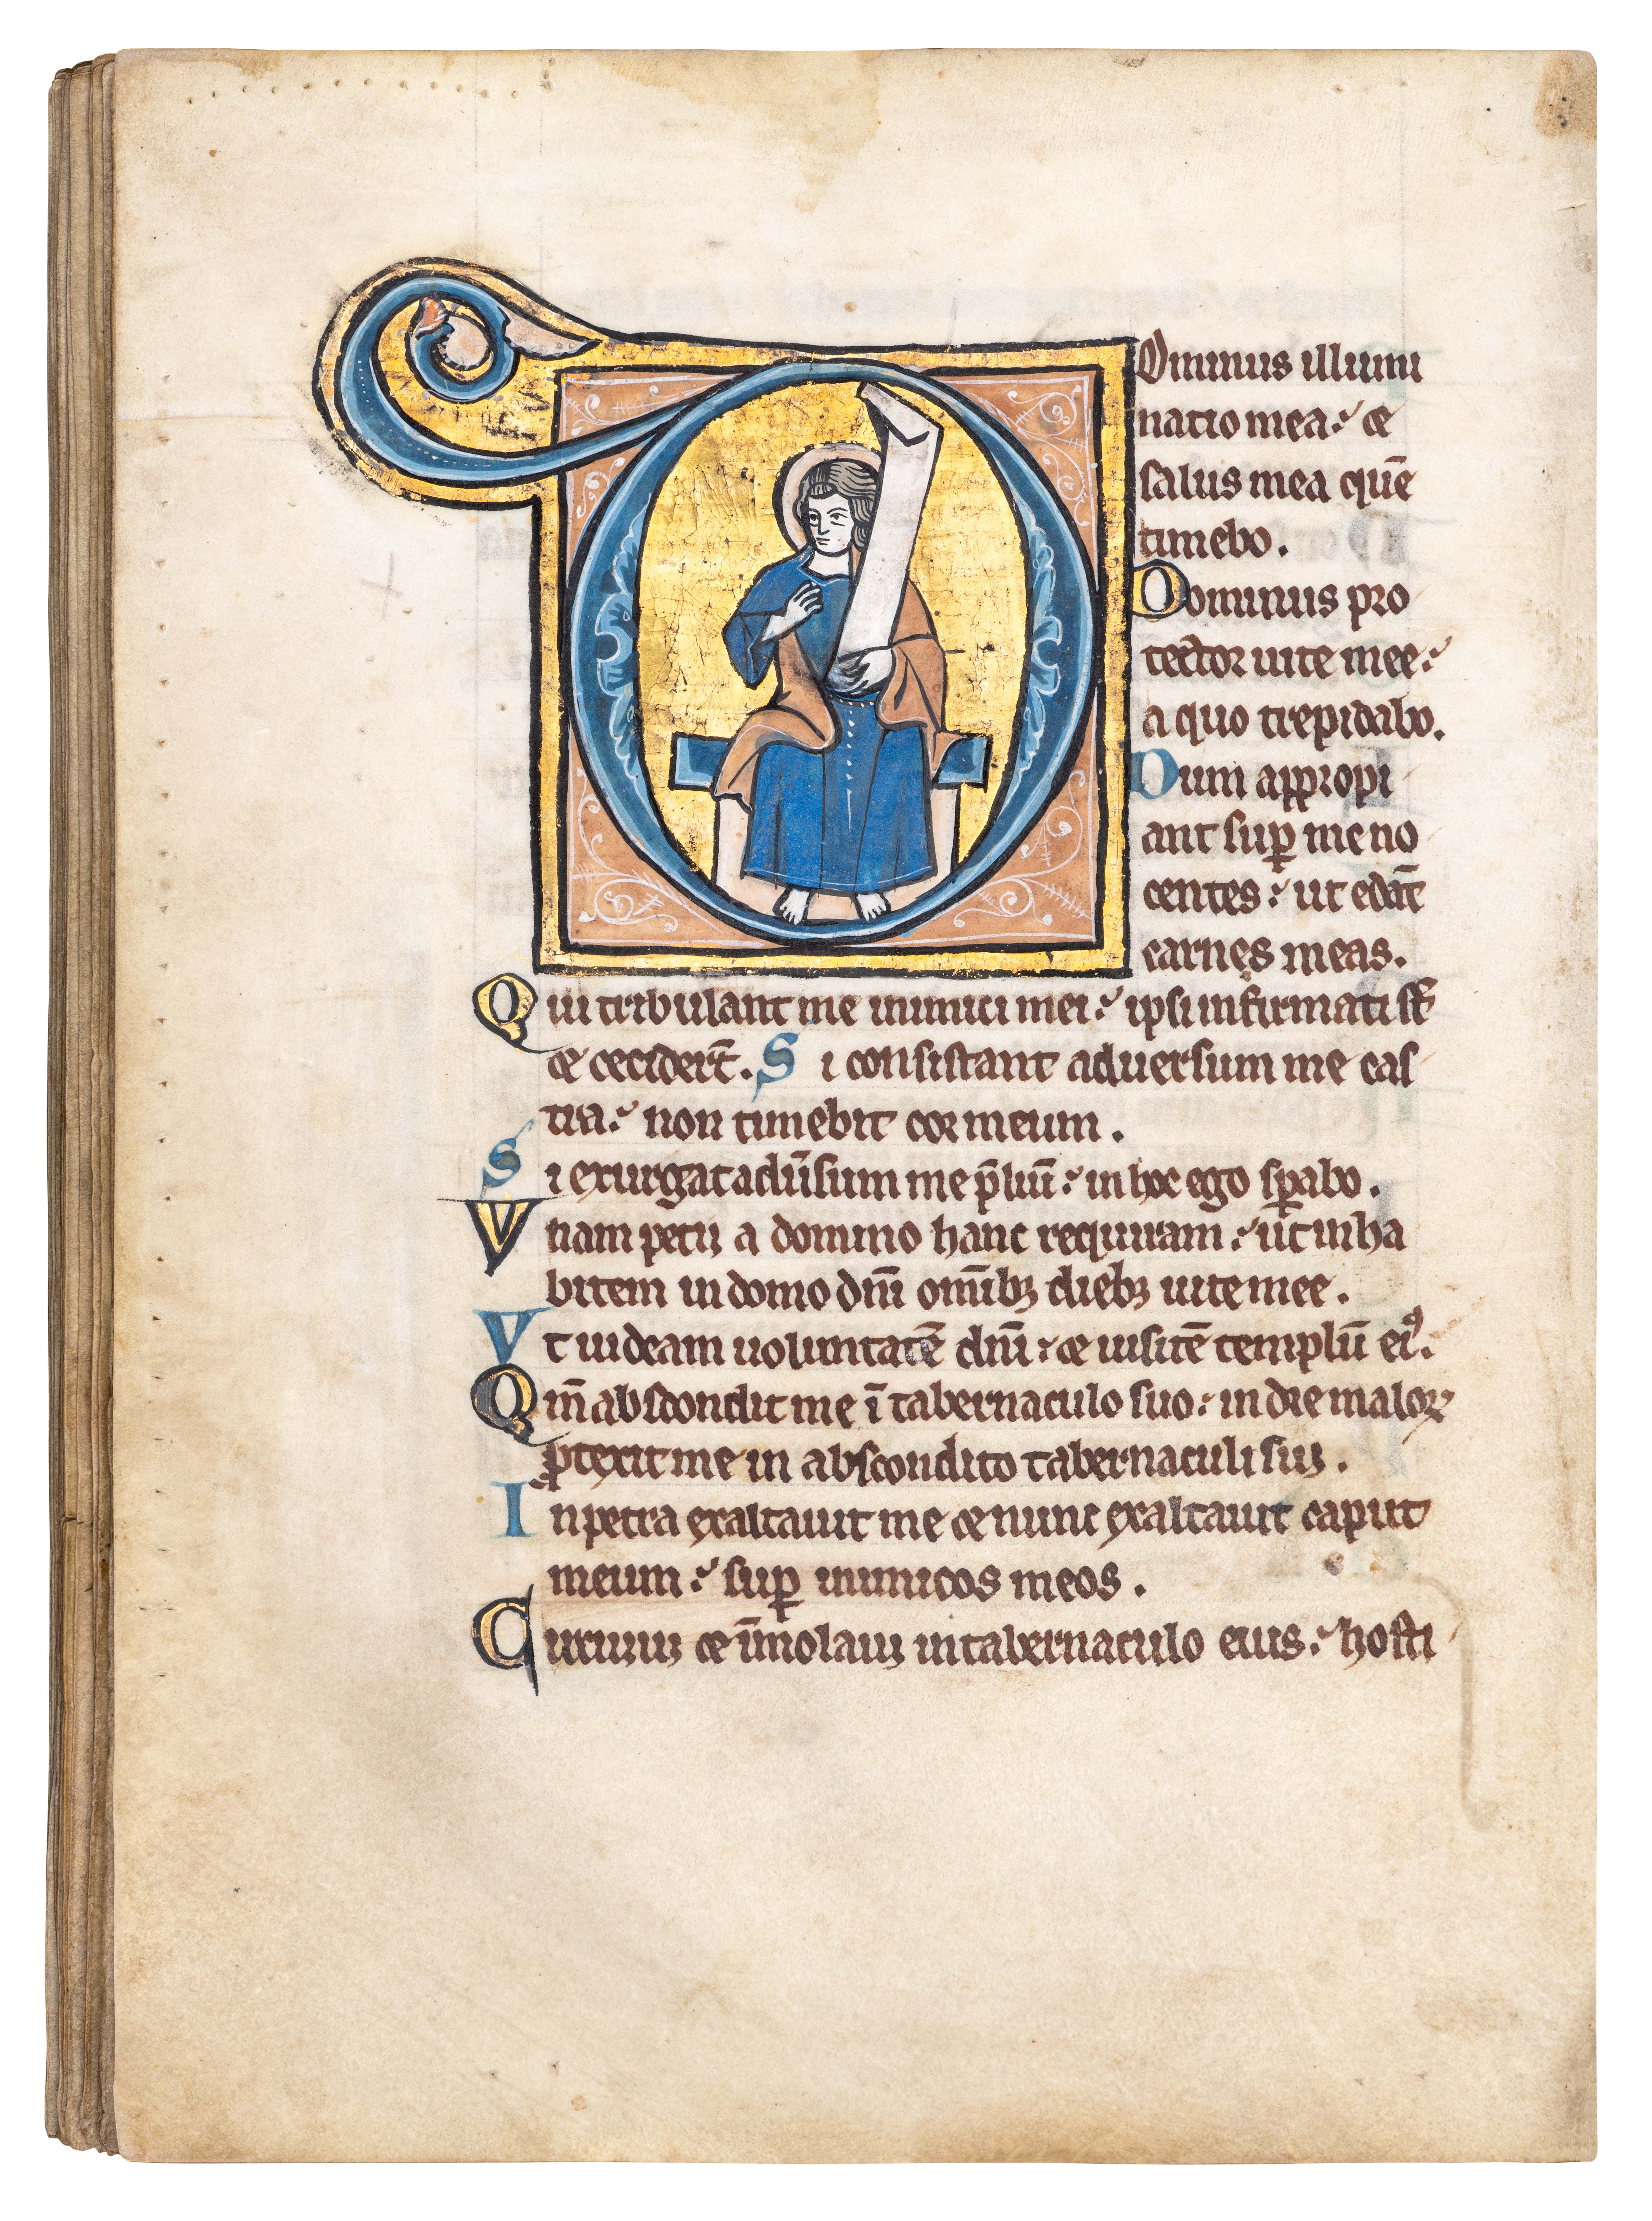 Ominus illumi
natio mea: &
salus mea quē
timebo.
Dominus pro
tector uite mee:
a quo trepidabo.
Dum appropi
ant sup̱ me no
centes: ut edāt
carnes meas.
Qui tribulant me inimici mei: ipsi infirmati st̄
& cecidert̄. Si consistant aduersum me cas
tra: non timebit cor meum.
Si exurgat adūsum me p̄liū: in hoc ego sp̱abo.
Vnam petii a domino hanc requiram: ut inha
bitem in domo dn̄i omīb; dieb; uite mee.
Vt uideam uoluntatē dn̄i: & uisitē templū eiꝰ.
Qm̄ abscondit me ī tabernaculo suo: in die maloꝝ
ꝓtexit me in abscondito tabernaculi sui.
In petra exaltauit me & nunc exaltauit caput
meum: sup̱ inimicos meos.
Circuiui & īmolaui in tabernaculo eius: hosti